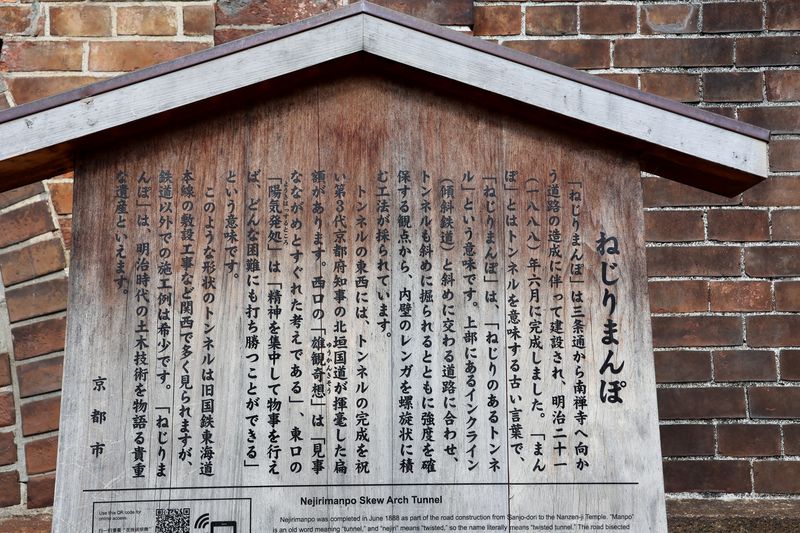 ねじりまんぽ
「ねじりまんぽ」は三条通から南禅寺へ向か
う道路の造成に伴って建設され、明治二十一
（一八八八）年六月に完成しました。「まん
ぽ」とはトンネルを意味する古い言葉で、
「ねじりまんぽ」は、「ねじりのあるトンネ
ル」という意味です。上部にあるインクライン
（傾斜鉄道）と斜めに交わる道路に合わせ、
トンネルも斜めに掘られるとともに強度を確
保する観点から、内壁のレンガを螺旋状に積
む工法が採られています。
トンネルの東西には、トンネルの完成を祝
い第3代京都府知事の北垣国道が揮毫した扁
額があります。西口の「雄観奇想」は「見事
なながめとすぐれた考えである」、東口の
「陽気発処」は「精神を集中して物事を行え
ば、どんな困難にも打ち勝つことができる」
という意味です。
このような形状のトンネルは旧国鉄東海道
本線の敷設工事など関西で多く見られますが、
鉄道以外での施工例は希少です。「ねじりま
んぽ」は、明治時代の土木技術を物語る貴重
な遺産といえます。
京都市
Nejirimanpo Skew Arch Tunnel
Nejirimanpo was completed in June 1888 as part of the road construction from Sanjo-dori to the Nanzen-ji Temple. "Manpo"
is an old word meaning "tunnel," and "nejiri" means "twisted," so the name literally means "twisted tunnel." The road bisected
Use this QR code for
online access.